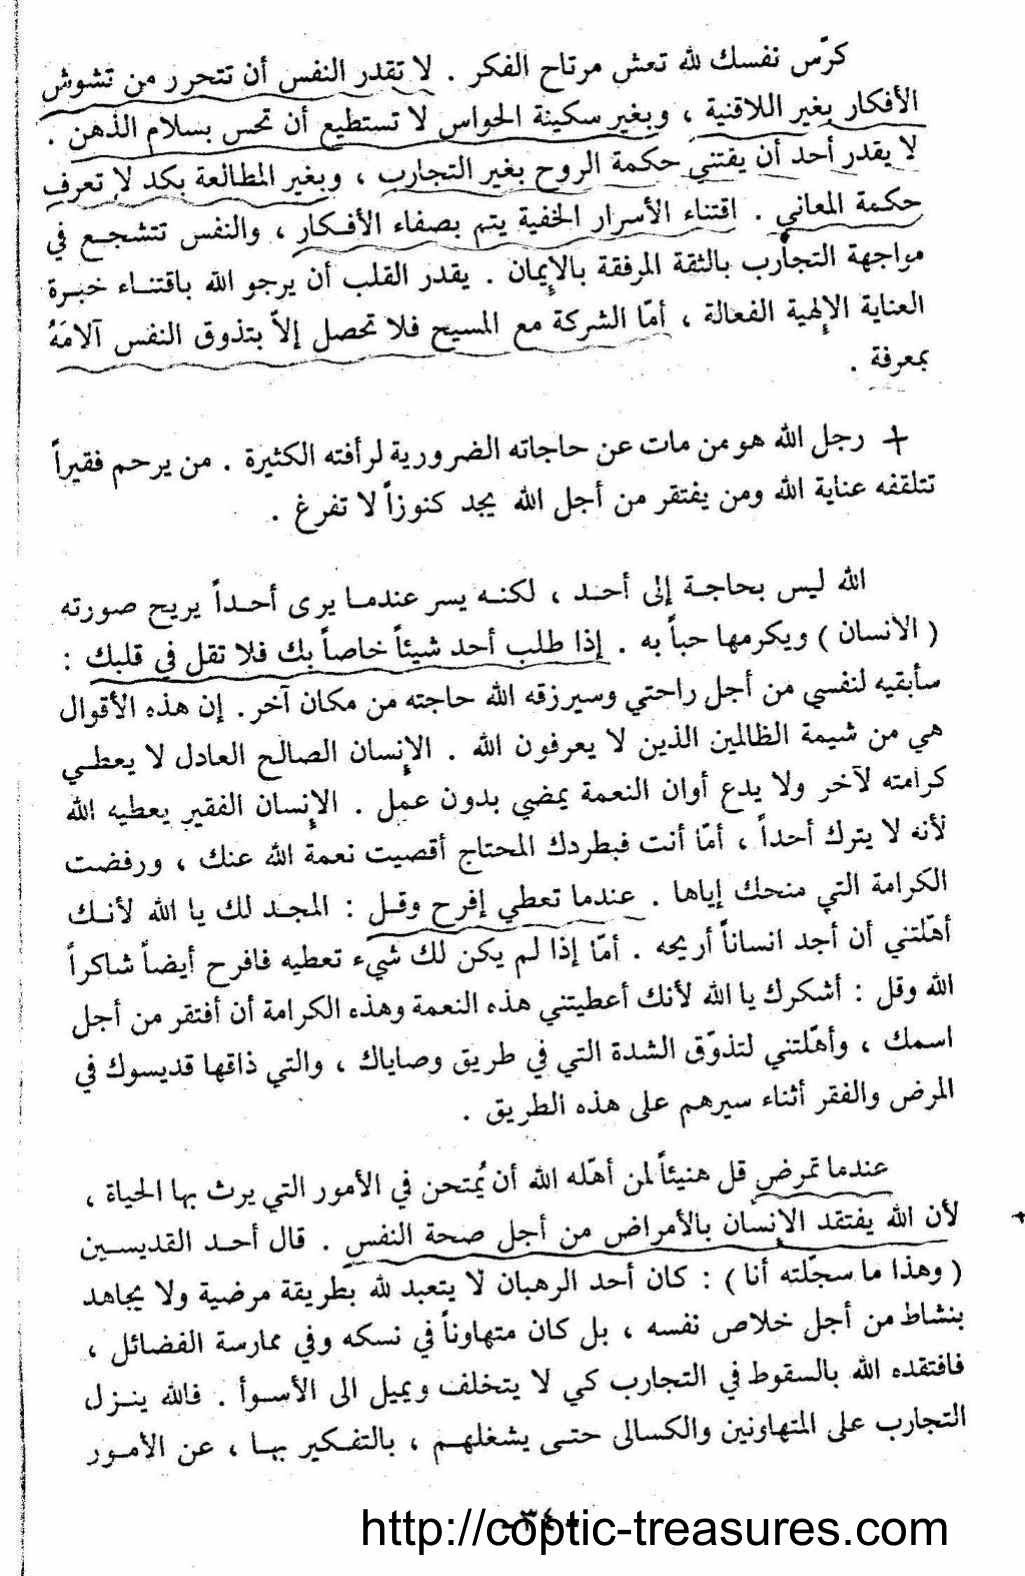 كرّس نفسك لله تعش مرتاح الفكر . لا تقدر النفس أن تتحرر من تشوش
الأفكار بغير اللاقنية ، وبغير سكينة الحواس لا تستطيع أن تحس بسلام الذهن .
لا يقدر أحد أن يقتني حكمة الروح بغير التجارب ، وبغير المطالعة بكد لا تعرف
حكمة المعاني . اقتناء الأسرار الخفية يتم بصفاء الأفكار ، والنفس تتشجع في
مواجهة التجارب بالثقة المرفقة بالإيمان . يقدر القلب أن يرجو الله باقتناء خبرة
العناية الإلهية الفعالة ، أمّا الشركة مع المسيح فلا تحصل إلاّ بتذوق النفس آلامَهُ
بمعرفة .
+ رجل الله هو من مات عن حاجاته الضرورية لرأفته الكثيرة . من يرحم فقيراً
تتلقفه عناية الله ومن يفتقر من أجل الله يجد كنوزاً لا تفرغ .
الله ليس بحاجة إلى أحد ، لكنه يسر عندما يرى أحداً يريح صورته
( الانسان ) ويكرمها حباً به . إذا طلب أحد شيئاً خاصاً بك فلا تقل في قلبك :
سأبقيه لنفسي من أجل راحتي وسيرزقه الله حاجته من مكان آخر . إن هذه الأقوال
هي من شيمة الظالمين الذين لا يعرفون الله . الإنسان الصالح العادل لا يعطي
كرامته لآخر ولا يدع أوان النعمة يمضي بدون عمل . الإنسان الفقير يعطيه الله
لأنه لا يترك أحداً ، أمّا أنت فبطردك المحتاج أقصيت نعمة الله عنك ، ورفضت
الكرامة التي منحك إياها . عندما تعطي إفرح وقل : المجد لك يا الله لأنك
أهّلتني أن أجد انساناً أريحه . أمّا إذا لم يكن لك شيء تعطيه فافرح أيضاً شاكراً
الله وقل : أشكرك يا الله لأنك أعطيتني هذه النعمة وهذه الكرامة أن أفتقر من أجل
اسمك ، وأهّلتني لتذوّق الشدة التي في طريق وصاياك ، والتي ذاقها قديسوك في
المرض والفقر أثناء سيرهم على هذه الطريق .
عندما تمرض قل هنيئاً لمن أهّله الله أن يُمتحن في الأمور التي يرث بها الحياة ،
لأن الله يفتقد الإنسان بالأمراض من أجل صحة النفس . قال أحد القديسين
( وهذا ما سجّلته أنا ) : كان أحد الرهبان لا يتعبد لله بطريقة مرضية ولا يجاهد
بنشاط من أجل خلاص نفسه ، بل كان متهاوناً في نسكه وفي ممارسة الفضائل ،
فافتقده الله بالسقوط في التجارب كي لا يتخلف ويميل الى الأسوأ . فالله ينزل
التجارب على المتهاونين والكسالى حتى يشغلهم ، بالتفكير بها ، عن الأمور
- ٣٤ -
http://coptic-treasures.com